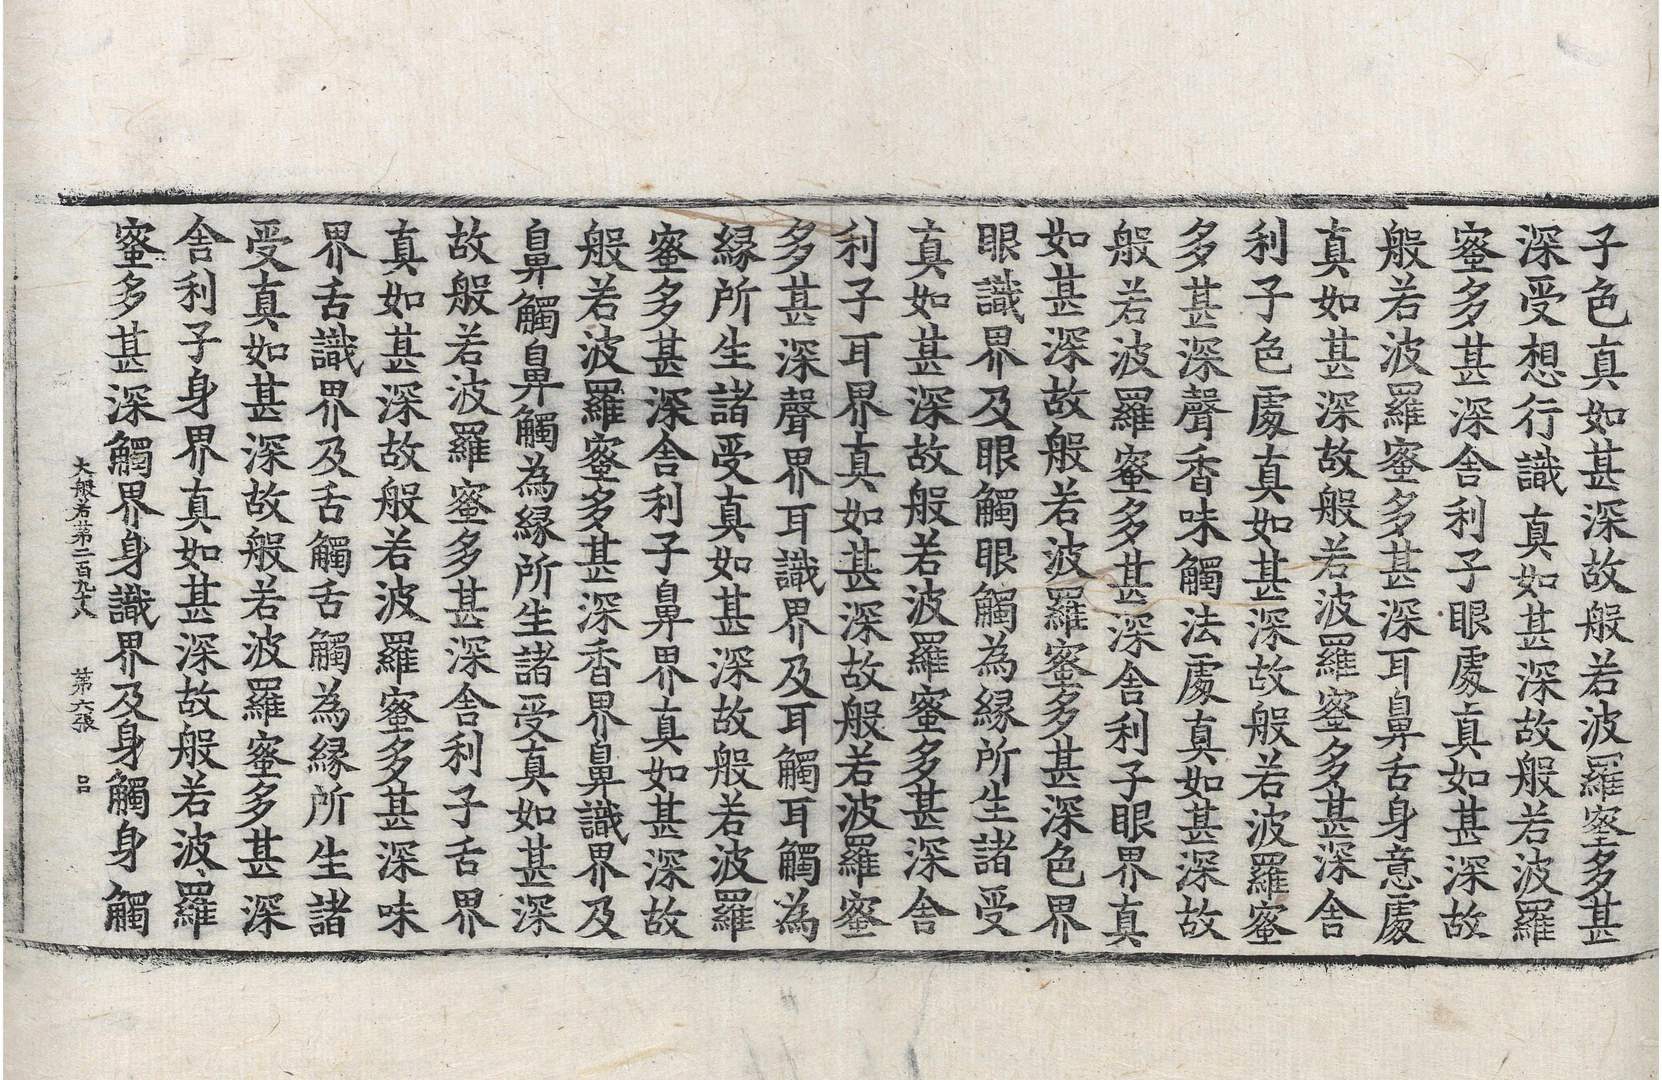 子色真如甚深故般若波羅蜜多甚
深受想行識真如甚深故般若波羅
蜜多甚深舍利子眼處真如甚深故
般若波羅蜜多甚深耳鼻舌身意處
真如甚深故般若波羅蜜多甚深舍
利子色處真如甚深故般若波羅蜜
多甚深聲香味觸法處真如甚深故
般若波羅蜜多甚深舍利子眼界真
如甚深故般若波羅蜜多甚深色界
眼識界及眼觸眼觸為緣所生諸受
真如甚深故般若波羅蜜多甚深舍
利子耳界真如甚深故般若波羅蜜
多甚深聲界耳識界及耳觸耳觸為
緣所生諸受真如甚深故般若波羅
蜜多甚深舍利子鼻界真如甚深故
般若波羅蜜多甚深香界鼻識界及
鼻觸鼻觸為緣所生諸受真如甚深
故般若波羅蜜多甚深舍利子舌界
真如甚深故般若波羅蜜多甚深味
界舌識界及舌觸舌觸為緣所生諸
受真如甚深故般若波羅蜜多甚深
舍利子身界真如甚深故般若波羅
蜜多甚深觸界身識界及身觸身觸
大般若第二百九十八 第六張 呂